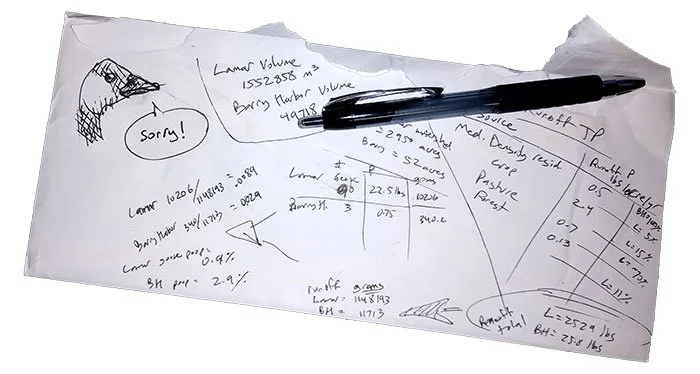 Sorry!
Lamar Volume
1552858 m³
Barry Harbor Volume
49718
watershed
= 2950 acres
Barry = 52 acres
Runoff TP
Source
Med. Density resid
Crop
Pasture
Forest
Runoff P
lbs/acre/yr
0.5
2.4
0.7
0.13
L=15%
L=11%
# Geese
P
gms
Lamar
90
22.5 lbs
10206
Barry H.
3
0.75
340.2
Lamar 10206/1148193 = .0089
Barry Harbor 340/11713 = .0029
Lamar goose poop =
0.9%
BH poop = 2.9%
runoff grams
Lamar = 1148193
BH = 11713
Runoff
total
L=2529 lbs
BH=25.8 lbs